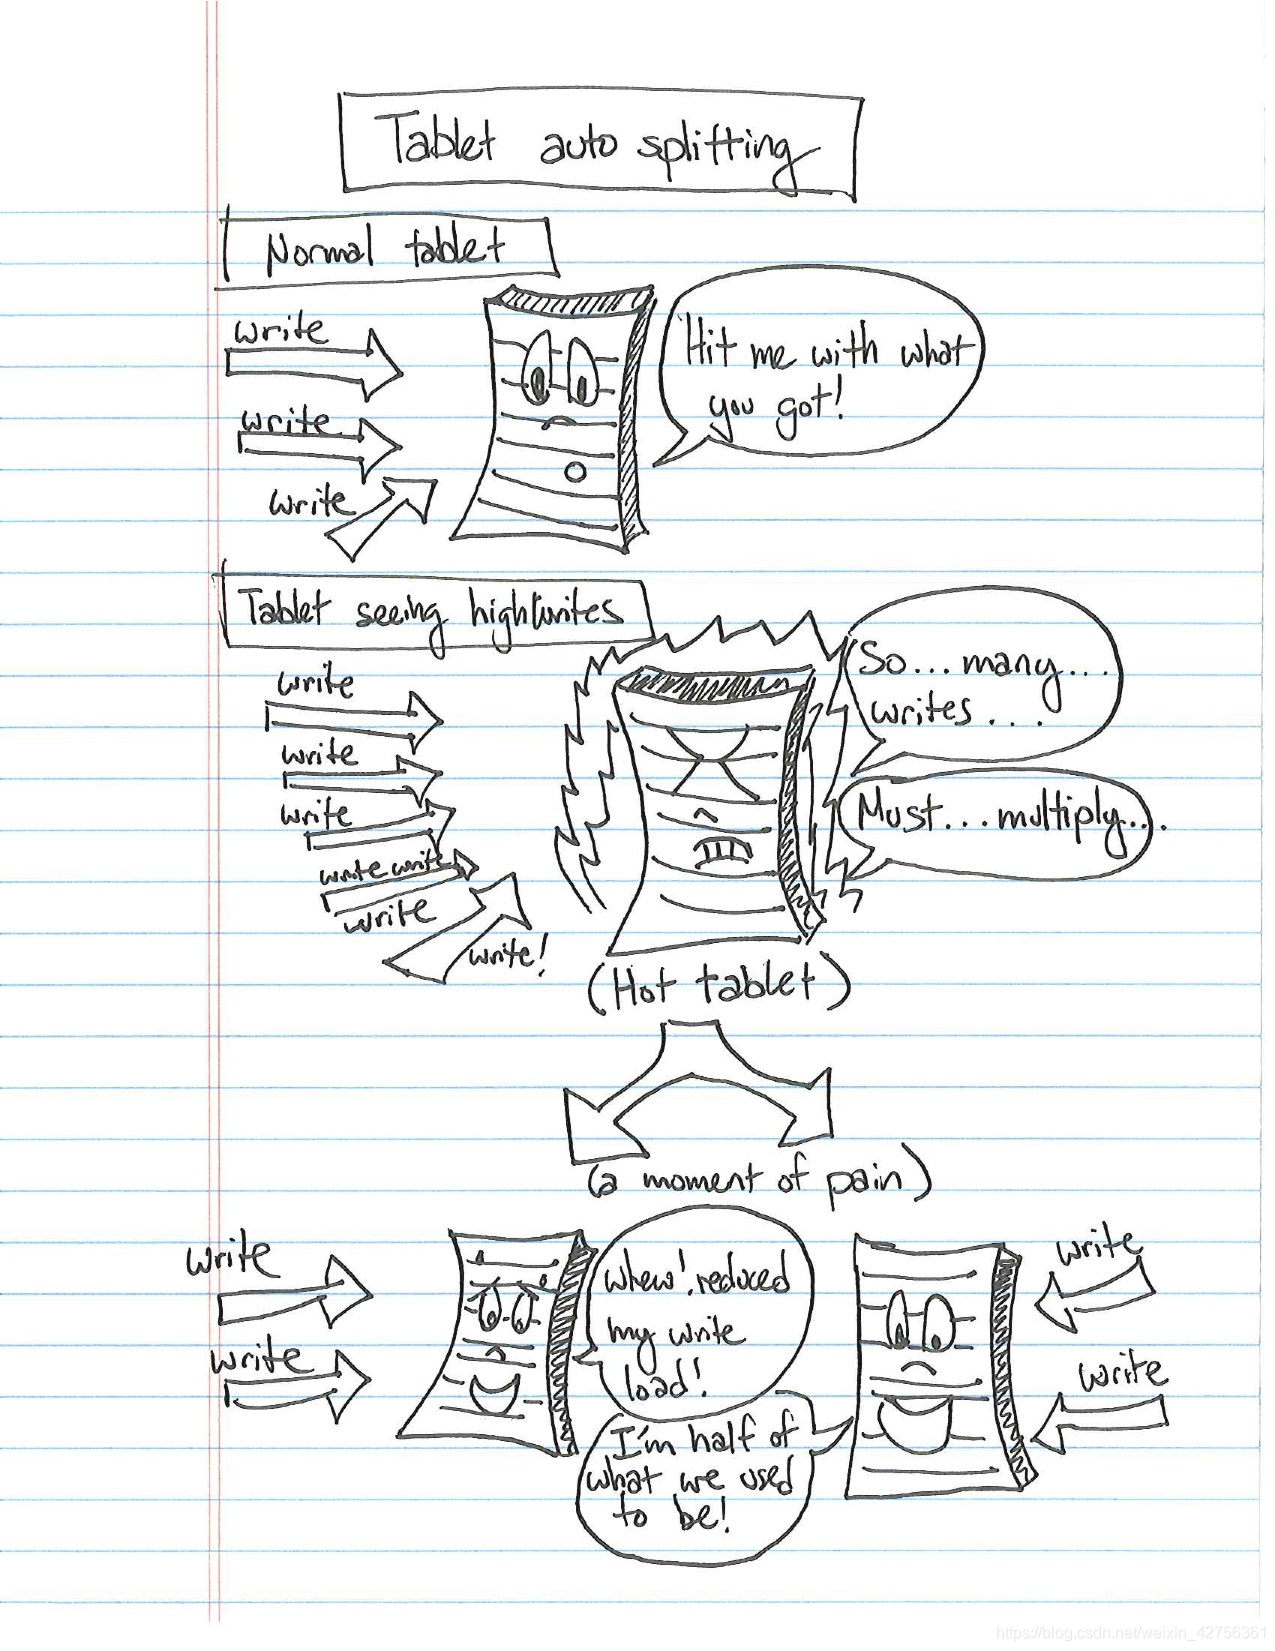 Tablet auto splitting
Normal tablet
write
write
write
Hit me with what
you got!
Tablet seeing high writes
write
write
write
write write
write
write!
So... many...
writes...
Must... multiply...
(Hot tablet)
(a moment of pain)
write
write
whew! reduced
my write
load!
I'm half of
what we used
to be!
write
write
https://blog.csdn.net/weixin_42756361